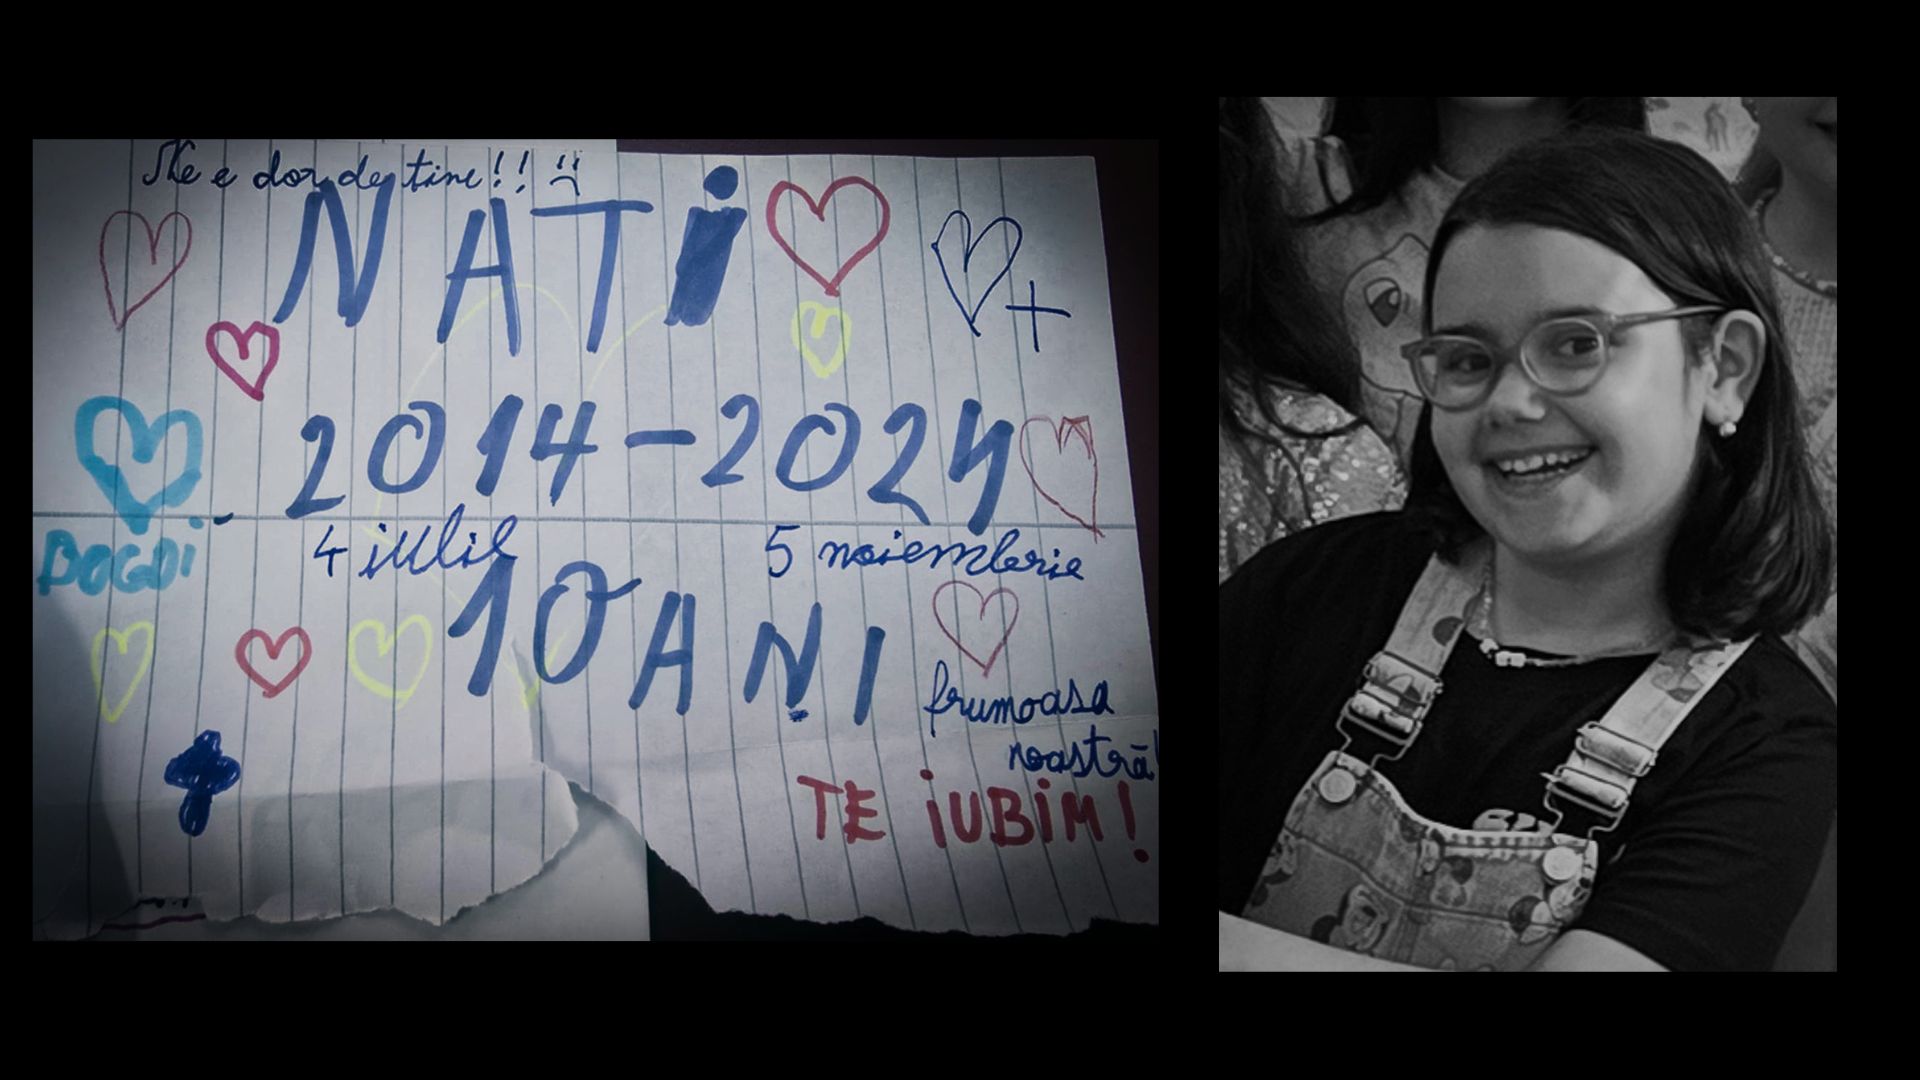 Ne e dor de tine!! :(
NATI
2014-2024
4 iulie 5 noiembrie
BOGDI
10 ANI
frumoasa
noastră!
TE IUBIM!